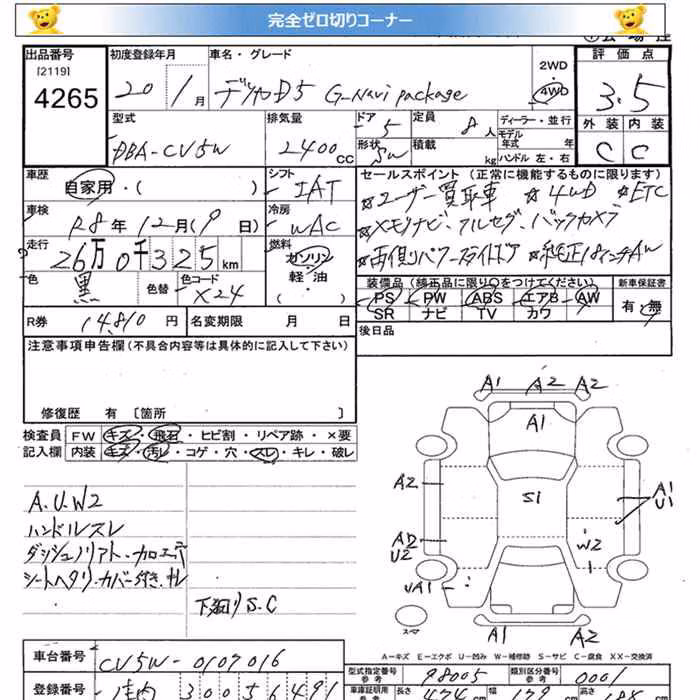 完全ゼロ切りコーナー
出品番号
[2119]
4265
初度登録年月
20 / 1 月
車名・グレード
デリカD5 G-Navi package
2WD
4WD
評価点
3.5
外装 内装
C C
型式
DBA-CV5W
排気量
2400 cc
ドア
5
形状
SW
定員
8 人
積載
kg
ディーラー・並行
モデル
年式 年
ハンドル 左・右
車歴
自家用・( )
シフト
IAT
セールスポイント(正常に機能するものに限ります)
☆ユーザー買取車 ☆4WD ☆ETC
☆メモリナビ、フルセグ、バックカメラ
☆両側パワースライドドア ☆純正18インチAW
車検
R8年 12月(9 日)
冷房
WAC
走行
26万0千325 km
燃料
ガソリン
軽・油
( )
色
黒
色替
色コード
X24
装備品(純正品に限り○をつけてください)
PS PW ABS エアB AW
SR ナビ TV カワ
新車保証書
有・無
R券 14,810 円
名変期限 月 日
後日品
注意事項申告欄(不具合内容等は具体的に記入して下さい)
修復歴 有 〔箇所 〕
検査員 FW キズ・飛石・ヒビ割・リペア跡・×要
記入欄 内装 キズ・汚レ・コゲ・穴・スレ・キレ・破レ
A.U.W2
ハンドルスレ
ダッシュノリアト、加工穴
シートヘタリ、カバー付き、スレ
下廻りS.C
A1 A2 A2
A1
A2
S1
A1
U1
A2
U2
W2
UA1
A1 A2
スペア
A-キズ E-エクボ U-凹み W-補修跡 S-サビ C-腐食 XX-交換済
車台番号 CV5W-0107016
型式指定番号 98005
参考
類別区分番号 0001
参考
登録番号
300
車庫証明用
参考
長さ
474